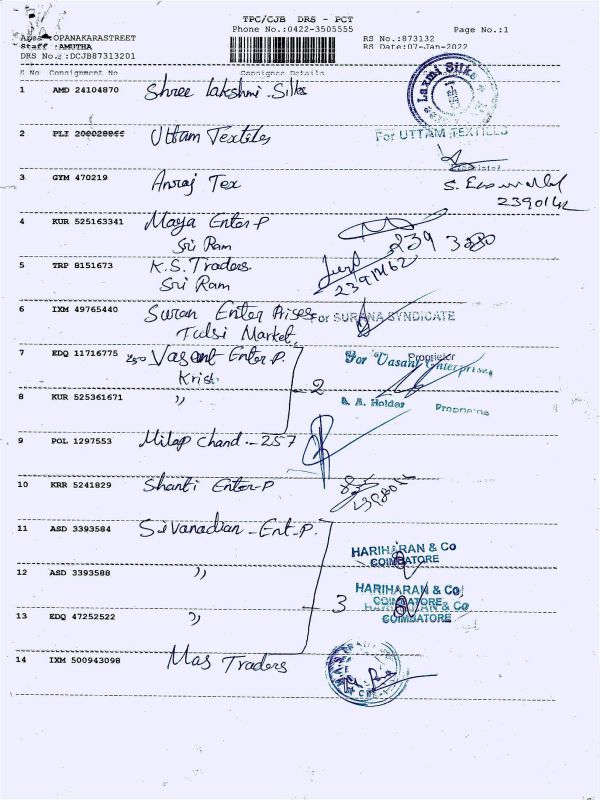 TPC/CJB DRS - PCT
Phone No.:0422-3505555
Page No.:1
Area :OPANAKARASTREET
Staff :AMUTHA
DRS No.:DCJB87313201
RS No.:873132
RS Date:07-Jan-2022
S No Consignment No Consignee Details
1 AMD 24104870 Shree Lakshmi Silks
Laxmi Silks
2 PLI Uttam Textiles
For UTTAM TEXTILES
3 GYM 470219 Anraj Tex
S.
4 KUR 525163341 Maya Enter-P
Sri Ram
239
5 TRP 8151673 K.S. Traders
Sri Ram
6 IXM 49765440 Suran Enter Prises
Tulsi Market
For SURANA SYNDICATE
Proprietor
7 EDQ 11716775 250 Vasant Enter-P.
Krish
2
For Vasant Enterprises
8 KUR 525361671 "
A. Holder
9 POL 1297553 Milap Chand - 257
10 KRR 5241829 Shanti Enter-P
11 ASD 3393584 Sivanadian - Ent-P.
HARIHARAN & Co
COIMBATORE
12 ASD 3393588 "
3
HARIHARAN & Co
COIMBATORE
HARIHARAN & Co
COIMBATORE
13 EDQ 47252522 "
14 IXM 500943098 Mas Traders